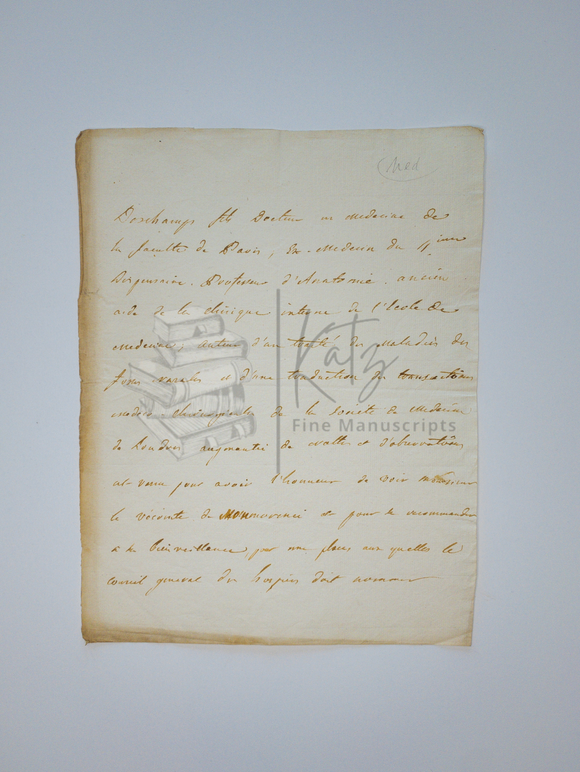 (Med
Deschamps fils Docteur en medecine de
la faculté de Paris, Ex-medecin du 4ieme
Dispensaire. Professeur d'Anatomie. ancien
aide de la clinique interne de l'école de
medecine, auteur d'un traité des maladies des
fosses nasales et d'une traduction des transactions
medico-chirurgicales de la Societé de Medecine
de Londres, augmentée de nottes et d'observations
est venu pour avoir l'honneur de voir monsieur
le vicomte de et pour se recommander
à sa bienveillance pour une place aux quelles le
conseil general des hospices doit nommer
Katz
Fine Manuscripts